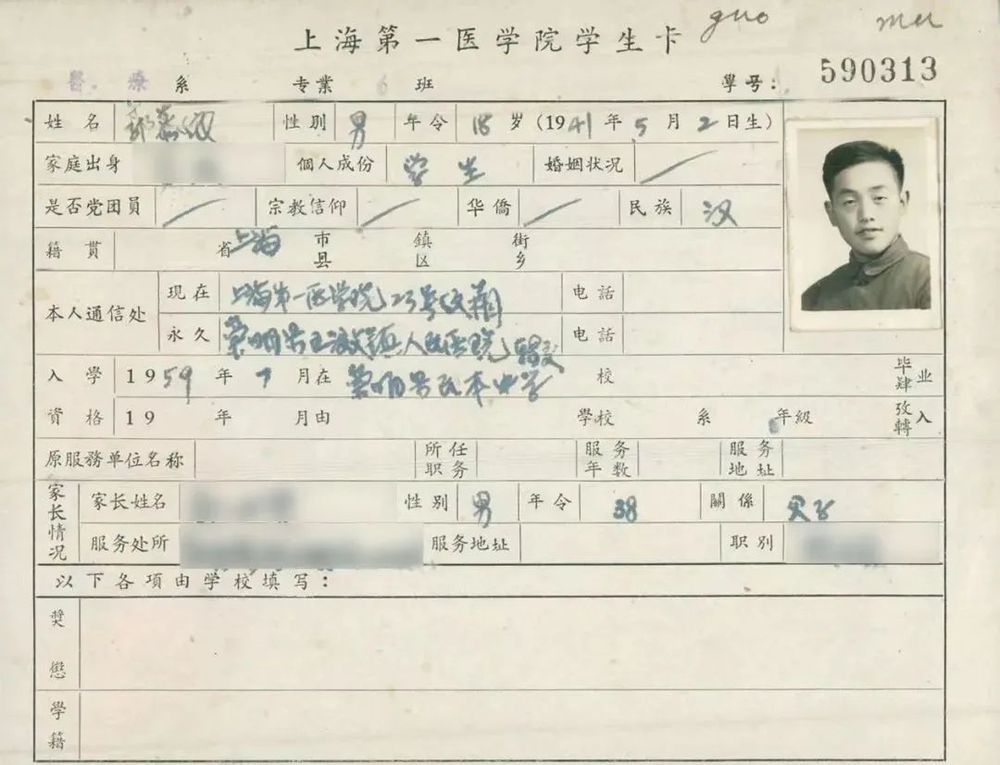 guo mu
上海第一医学院学生卡
醫療系 专業 6 班 學号: 590313
姓名 郭慕 性别 男 年令 18 岁 (1941 年 5 月 2 日生)
家庭出身 個人成份 学生 婚姻状况
是否党团員 宗教信仰 华僑 民族 汉
籍貫 省 上海 市县 鎮区 街乡
本人通信处 现在 上海第一医学院 23号 电話
永久 崇明 人民医院 转交 电話
入学 1959 年 7 月在 崇明 民本中学 校 毕肄业
資格 19 年 月由 学校 系 年級 攷轉入
原服務单位名称 所任职务 服务年数 服务地址
家长情况 家长姓名 性别 男 年令 38 關係 父子
服务处所 服务地址 职别
以下各項由学校填写:
奖惩
學籍